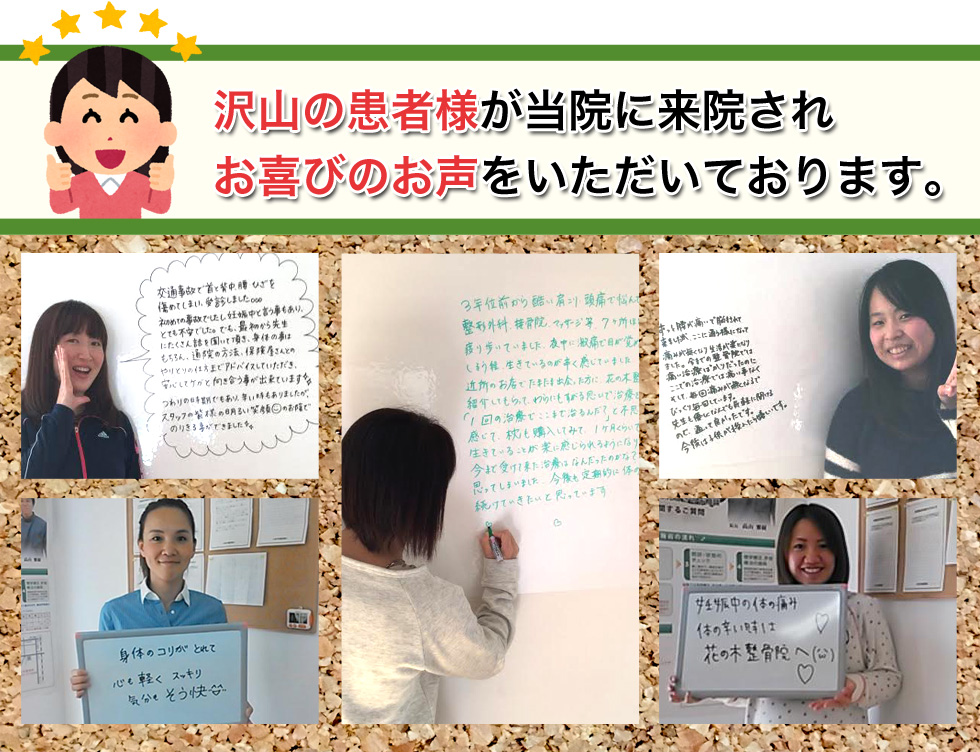 沢山の患者様が当院に来院され
お喜びのお声をいただいております。
交通事故で首と背中 腰 ひざを
傷めてしまい、受診しました。。。
初めての事故でしたし妊娠中と言う事もあり、
とても不安でした。でも、最初から先生
にたくさん話を聞いて頂き、身体の事は
もちろん、通院の方法、保険屋さんとの
やりとりの仕方までアドバイスしていただき、
安心してケガと向き合う事が出来ています
つわりの時期でもあり、辛い時もありましたが、
スタッフの皆様の明るい笑顔のお陰で
のりきる事ができました
3年位前から酷い肩こり 頭痛で悩んで
整形外科 接骨院 マッサージ等 7ヶ所は
渡り歩いていました。夜中に激痛で目が覚め
しまう程、生きているのが辛く感じていました
近所のお店でたまたま出会った方に、花の木整
紹介してもらって、わらにもすがる思いで治療を
「1回の治療でここまで治るんだ?」と不思
感じて、枕も購入してみて、1ヶ月くらいで
生きていることが楽に感じられるようになり
今まで受けて来た治療はなんだったのかなて
思ってしまいました。今後も定期的に体の
続けていきたいと思っています
ずっと膝が痛いて悩まされ
来ましたが、ここに通う様になって
痛みが無くなり生活が楽になり
ました。今までの整骨院では
痛い治療ばかりだったのに
ここでの治療では痛い事なく
そして、毎回痛みが無くなるので
びっくり毎回しています。
先生も優しくなんでも質問に聞ける
ので、通って良かったです。
身体のコリがとれて
心も軽く スッキリ
気分もそう快
関するご質問
施術の流れ
妊娠中の体の痛み
体の辛い時は
花の木整骨院へ